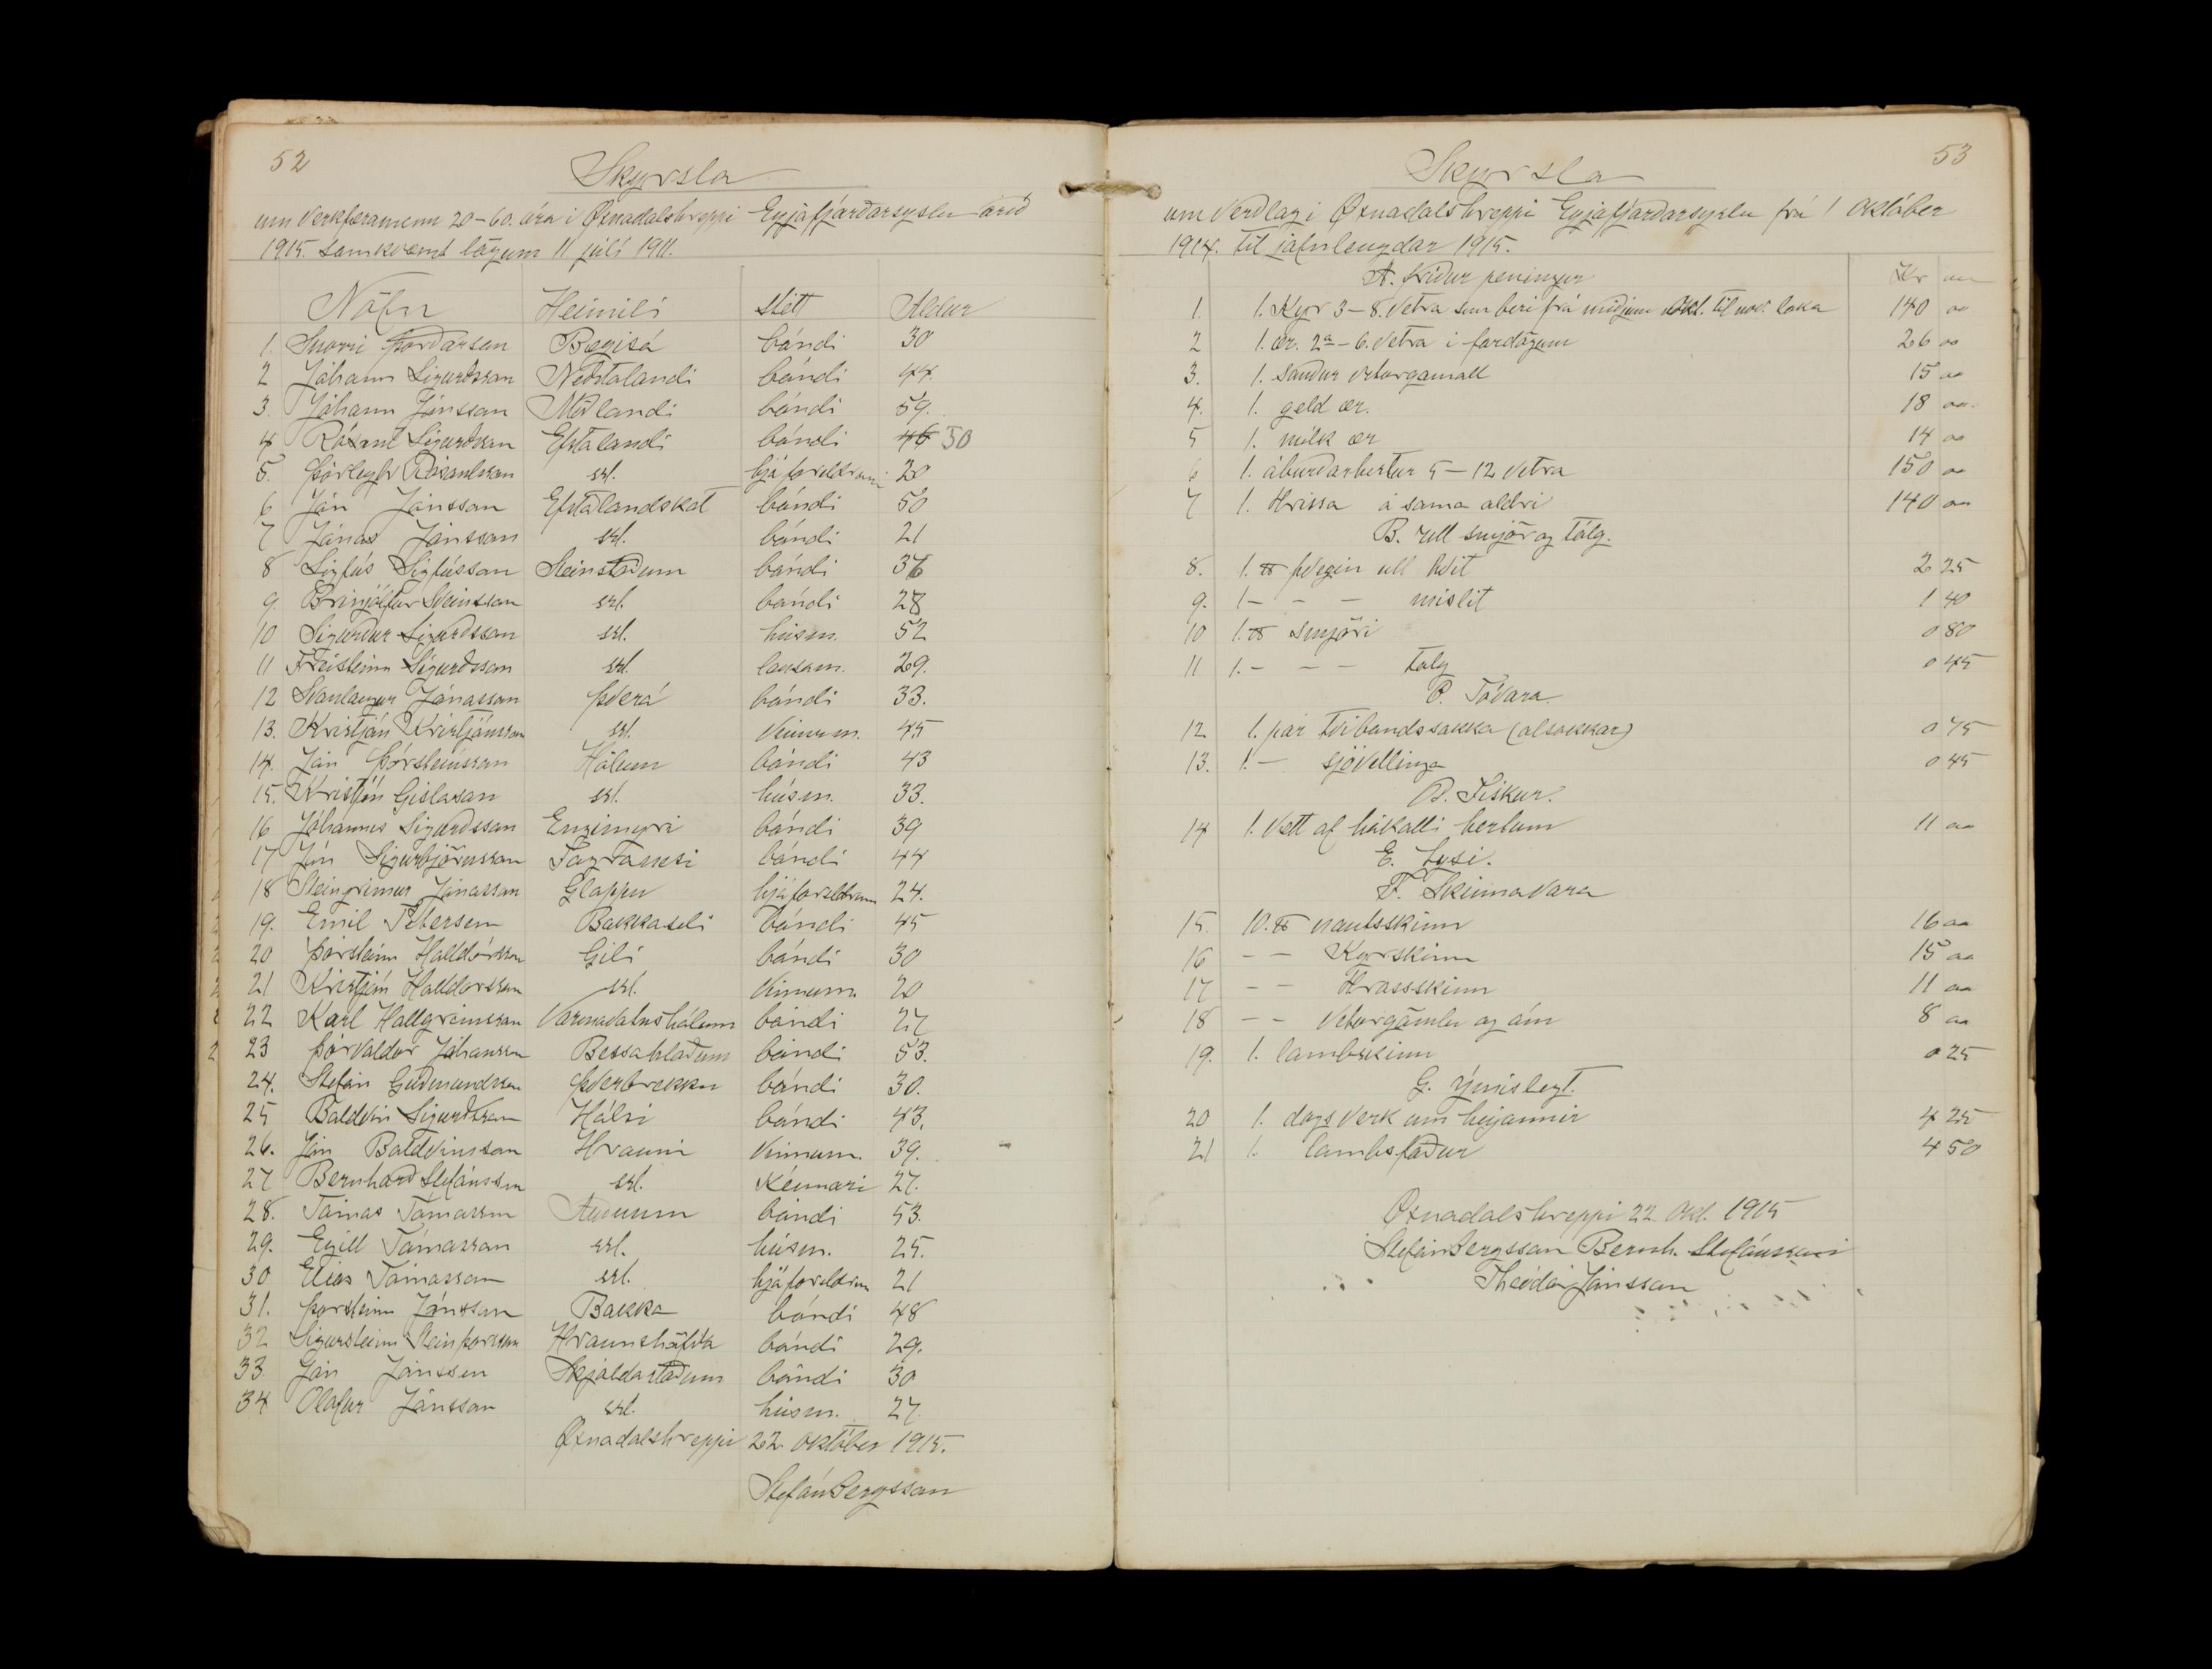 52
Skyrsla
um Verkfæramenn 20-60. ára i Øxnadalshreppi Eyjafjarðarsyslu árið
1915. samkvæmt lögum 11 júlí 1911.
Nöfn Heimili Stétt Aldur
1. Snorri Þorðarson Bægisá bándi 30
2 Jóhann Sigurðsson Neðstalandi bándi 44.
3. Jóhann Jónsson Miðlandi bándi 59.
4 Rósant Sigurðsson Efstalandi bándi 46 50
5. Þórleyfr Rósantsson srl. hjá foreldrum 20
6 Jón Jónsson Efstalandskot bándi 50
7 Jónas Jónsson srl. bándi 21
8 Sigfús Sigfússon Steinstöðum bándi 36
9. Brinjólfur Sveinsson srl. bándi 28
10 Sigurður Sigurðsson srl. húsm. 52
11 Freisteinn Sigurðsson srl. lausam. 29.
12 Svanlaugur Jónasson Þverá bándi 33.
13. Kristján Kristjánsson srl. Vinnum. 45
14. Jón Þórsteinsson Hólum bándi 43
15. Kristján Gislason srl. húsm. 33.
16 Jóhannes Sigurðsson Engimyri bándi 39
17 Jón Sigurbjörnsson Fagranesi bándi 44
18 Steingrimur Jónasson Gloppu hjá foreldrum 24.
19. Emil Petersen Bakkaseli bándi 45
20 Þórsteinn Halldórsson Gili bándi 30
21 Kristján Halldorsson srl. Vinnum. 20
22 Karl Hallgrimsson Varmadalnshólum bándi 27
23 Þórvaldur Jóhansson Bessahlöðum bándi 53.
24. Stefán Guðmundsson Þverbrekku bándi 30.
25 Baldvin Sigurðsson Hálsi bándi 43.
26. Jón Baldvinsson Hrauni Vinnum. 39.
27 Bernharð Stefánsson srl. Kénnari 27.
28. Tómas Tómasson Auðnum bándi 53.
29. Egill Tómasson srl. húsm. 25.
30 Elias Tómasson srl. hjá foreldrum 21
31. Þorsteinn Jónsson Bakka bándi 48
32 Sigursteinn Steinþorsson Hraunshöfða bándi 29.
33. Jón Jónsson Skjaldarstöðum bándi 30
34 Ólafur Jónsson srl. húsm. 27
Øxnadalshreppi 22 október 1915.
Stefán Bergsson
53
Skyrsla
um Verðlag i Øxnadalshreppi Eyjafjarðarsyslu frá 1 október
1914. til jafnlengdar 1915.
A. friður peningur Kr au
1. 1. Kyr 3-8. Vetra sem beri frá miðjum okt. til nov. loka 140 oo
2 1. ær. 2a-6. Vetra i fardögum 26 oo
3. 1. Sauður veturgamall 15 oo
4. 1. geld ær. 18 oo
5 1. milk ær 14 oo
6 1. áburðarhestur 5-12 Vetra 150 oo
7 1. Hrissa á sama aldri 140 oo
B. Ull smjör og tólg.
8. 1. ℔ þvegin ull hvit 2 25
9. 1 - - - mislit 1 40
10 1. ℔ smjöri 0 80
11 1. - - - tolg 0 45
C. Tóvara.
12 1. par tvibandssokka (alsokkar) 0 75
13. 1. - sjóvettlinga 0 45
D. Fiskur.
14 1. Vætt af hákalli hertum 11 oo
E. Lysi.
F. Skinnavara
15. 10. ℔ nautsskinn 16 oo
16 - - Kyrskinn 15 oo
17 - - Hrossskinn 11 oo
18 - - Veturgömlu og ám 8 oo
19. 1. lambskinn 0 25
G. ýmislegt.
20 1. dags Verk um heyannir 4 25
21 1. lambsfóður 4 50
Øxnadalshreppi 22. okt. 1915
Stefán Bergsson Bernh. Stefánsson
Theódór Jónsson